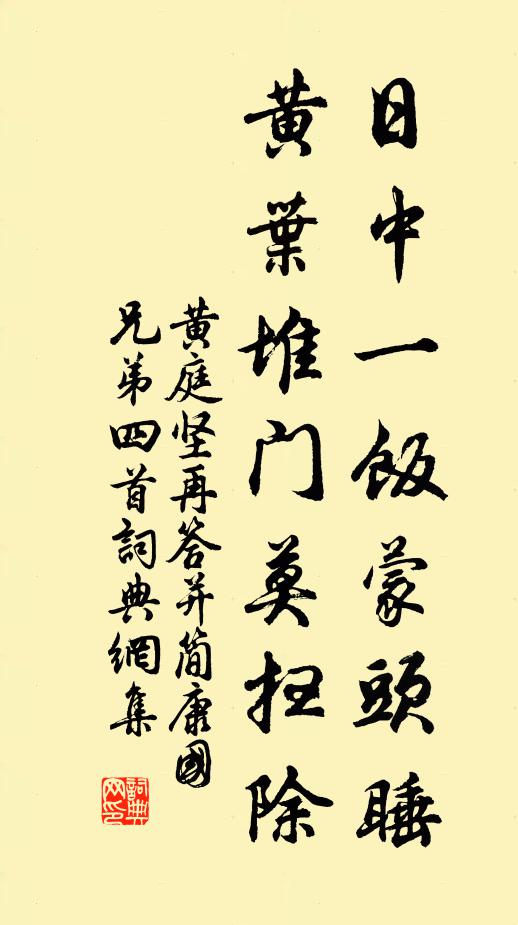 日中一飯蒙頭睡
黄葉堆門莫扫除
黄庭坚再答并简康國
兄弟四首詞典網集
詞典
网印